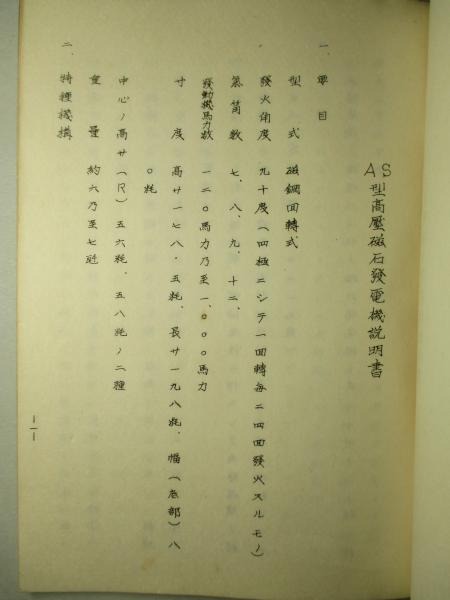 AS型高壓磁石發電機説明書
一、要目
型式 磁鋼回轉式
發火角度 九十度（四極ニシテ一回轉毎ニ四回發火スルモノ）
氣筒数 七、八、九、十二、
發動機馬力数 一二〇馬力乃至一、〇〇〇馬力
寸度 高サ一七八・五粍、長サ一九八粍、幅（底部）八
〇粍
中心ノ高サ（R）五六粍、五八粍ノ二種
重量 約六乃至七瓩
二、特種機構
—1—